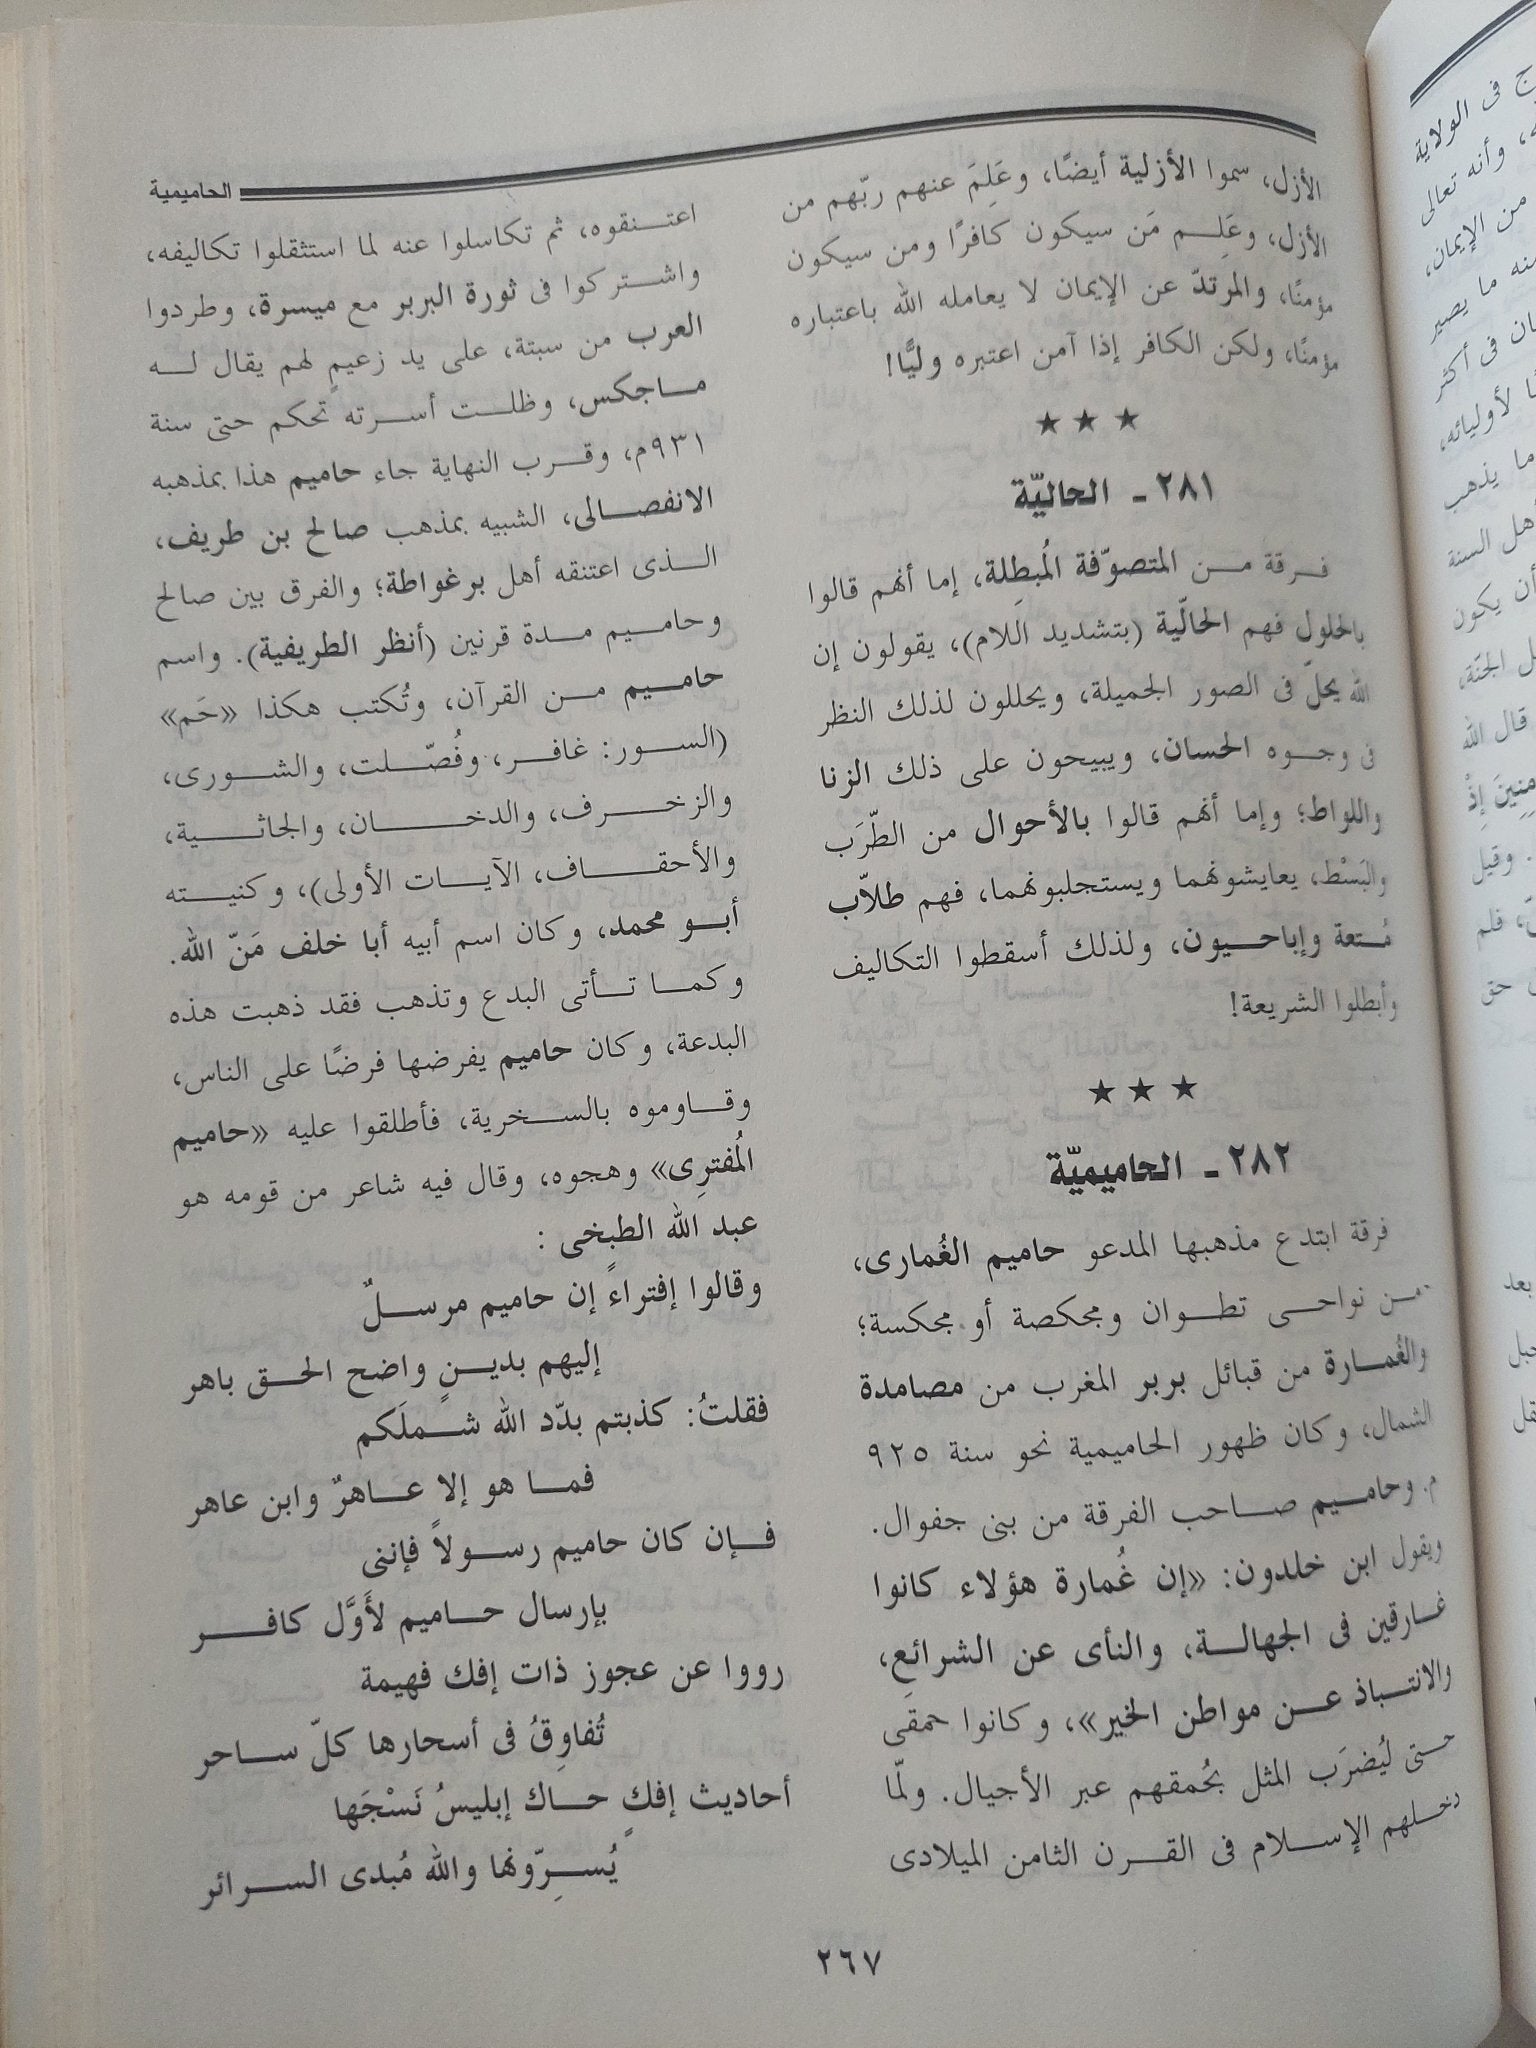 الحاميمية
الأزل، سموا الأزلية أيضًا، وعَلِمَ عنهم ربّهم من
الأزل، وعَلِم مَن سيكون كافرًا ومن سيكون
مؤمنًا، والمرتدّ عن الإيمان لا يعامله الله باعتباره
مؤمنًا، ولكن الكافر إذا آمن اعتبره وليًّا!
★ ★ ★
٢٨١ - الحاليّة
فرقة من المتصوّفة المُبطِلة، إما أنهم قالوا
بالحلول فهم الحالّية (بتشديد اللام)، يقولون إن
الله يحلّ فى الصور الجميلة، ويحللون لذلك النظر
فى وجوه الحسان، ويبيحون على ذلك الزنا
واللواط؛ وإما أنهم قالوا بالأحوال من الطّرَب
والبَسْط، يعايشونهما ويستجلبونهما، فهم طلاّب
مُتعة وإباحيون، ولذلك أسقطوا التكاليف
وأبطلوا الشريعة!
★ ★ ★
٢٨٢ - الحاميميّة
فرقة ابتدع مذهبها المدعو حاميم الغُمارى،
من نواحى تطوان ومجكصة أو مجكسة؛
والغُمارة من قبائل بربر المغرب من مصامدة
الشمال، وكان ظهور الحاميمية نحو سنة ٩٢٥
م. وحاميم صاحب الفرقة من بنى جفوال.
ويقول ابن خلدون: «إن غُمارة هؤلاء كانوا
غارقين فى الجهالة، والنأى عن الشرائع،
والانتباذ عن مواطن الخير»، وكانوا حمقَى
حتى ليُضرَب المثل بحُمقهم عبر الأجيال. ولمّا
دخلهم الإسلام فى القرن الثامن الميلادى
اعتنقوه، ثم تكاسلوا عنه لما استثقلوا تكاليفه،
واشتركوا فى ثورة البربر مع ميسرة، وطردوا
العرب من سبتة، على يد زعيمٍ لهم يقال له
ماجكس، وظلت أسرته تحكم حتى سنة
٩٣١م، وقرب النهاية جاء حاميم هذا بمذهبه
الانفصالى، الشبيه بمذهب صالح بن طريف،
الذى اعتنقه أهل برغواطة؛ والفرق بين صالح
وحاميم مدة قرنين (أنظر الطريفية). واسم
حاميم من القرآن، وتُكتب هكذا «حَم»
(السور: غافر، وفُصّلت، والشورى،
والزخرف، والدخان، والجاثية،
والأحقاف، الآيات الأولى)، وكنيته
أبو محمد، وكان اسم أبيه أبا خلف مَنّ الله.
وكما تأتى البدع وتذهب فقد ذهبت هذه
البدعة، وكان حاميم يفرضها فرضًا على الناس،
وقاوموه بالسخرية، فأطلقوا عليه «حاميم
المُفترِى» وهجوه، وقال فيه شاعر من قومه هو
عبد الله الطبخى :
وقالوا إفتراءً إن حاميم مرسلٌ
إليهم بدينٍ واضح الحق باهر
فقلتُ: كذبتم بدّد الله شملَكم
فما هو إلا عاهرٌ وابن عاهر
فإن كان حاميم رسولاً فإننى
بإرسال حاميم لأَوَّل كافر
رووا عن عجوز ذات إفك فهيمة
تُفاوِقُ فى أسحارها كلّ ساحر
أحاديث إفكٍ حاك إبليسُ نَسْجَها
يُسِرّونها والله مُبدى السرائر
٢٦٧